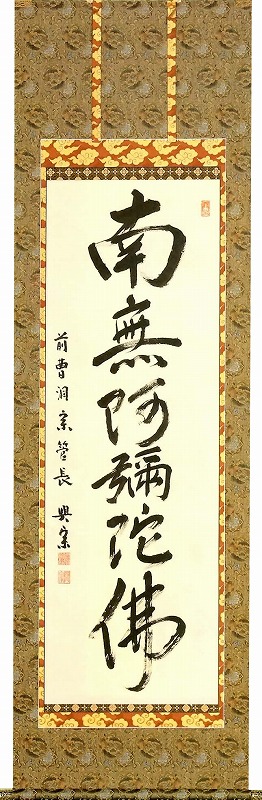 南無阿彌陀佛
前曹洞宗管長 興宗